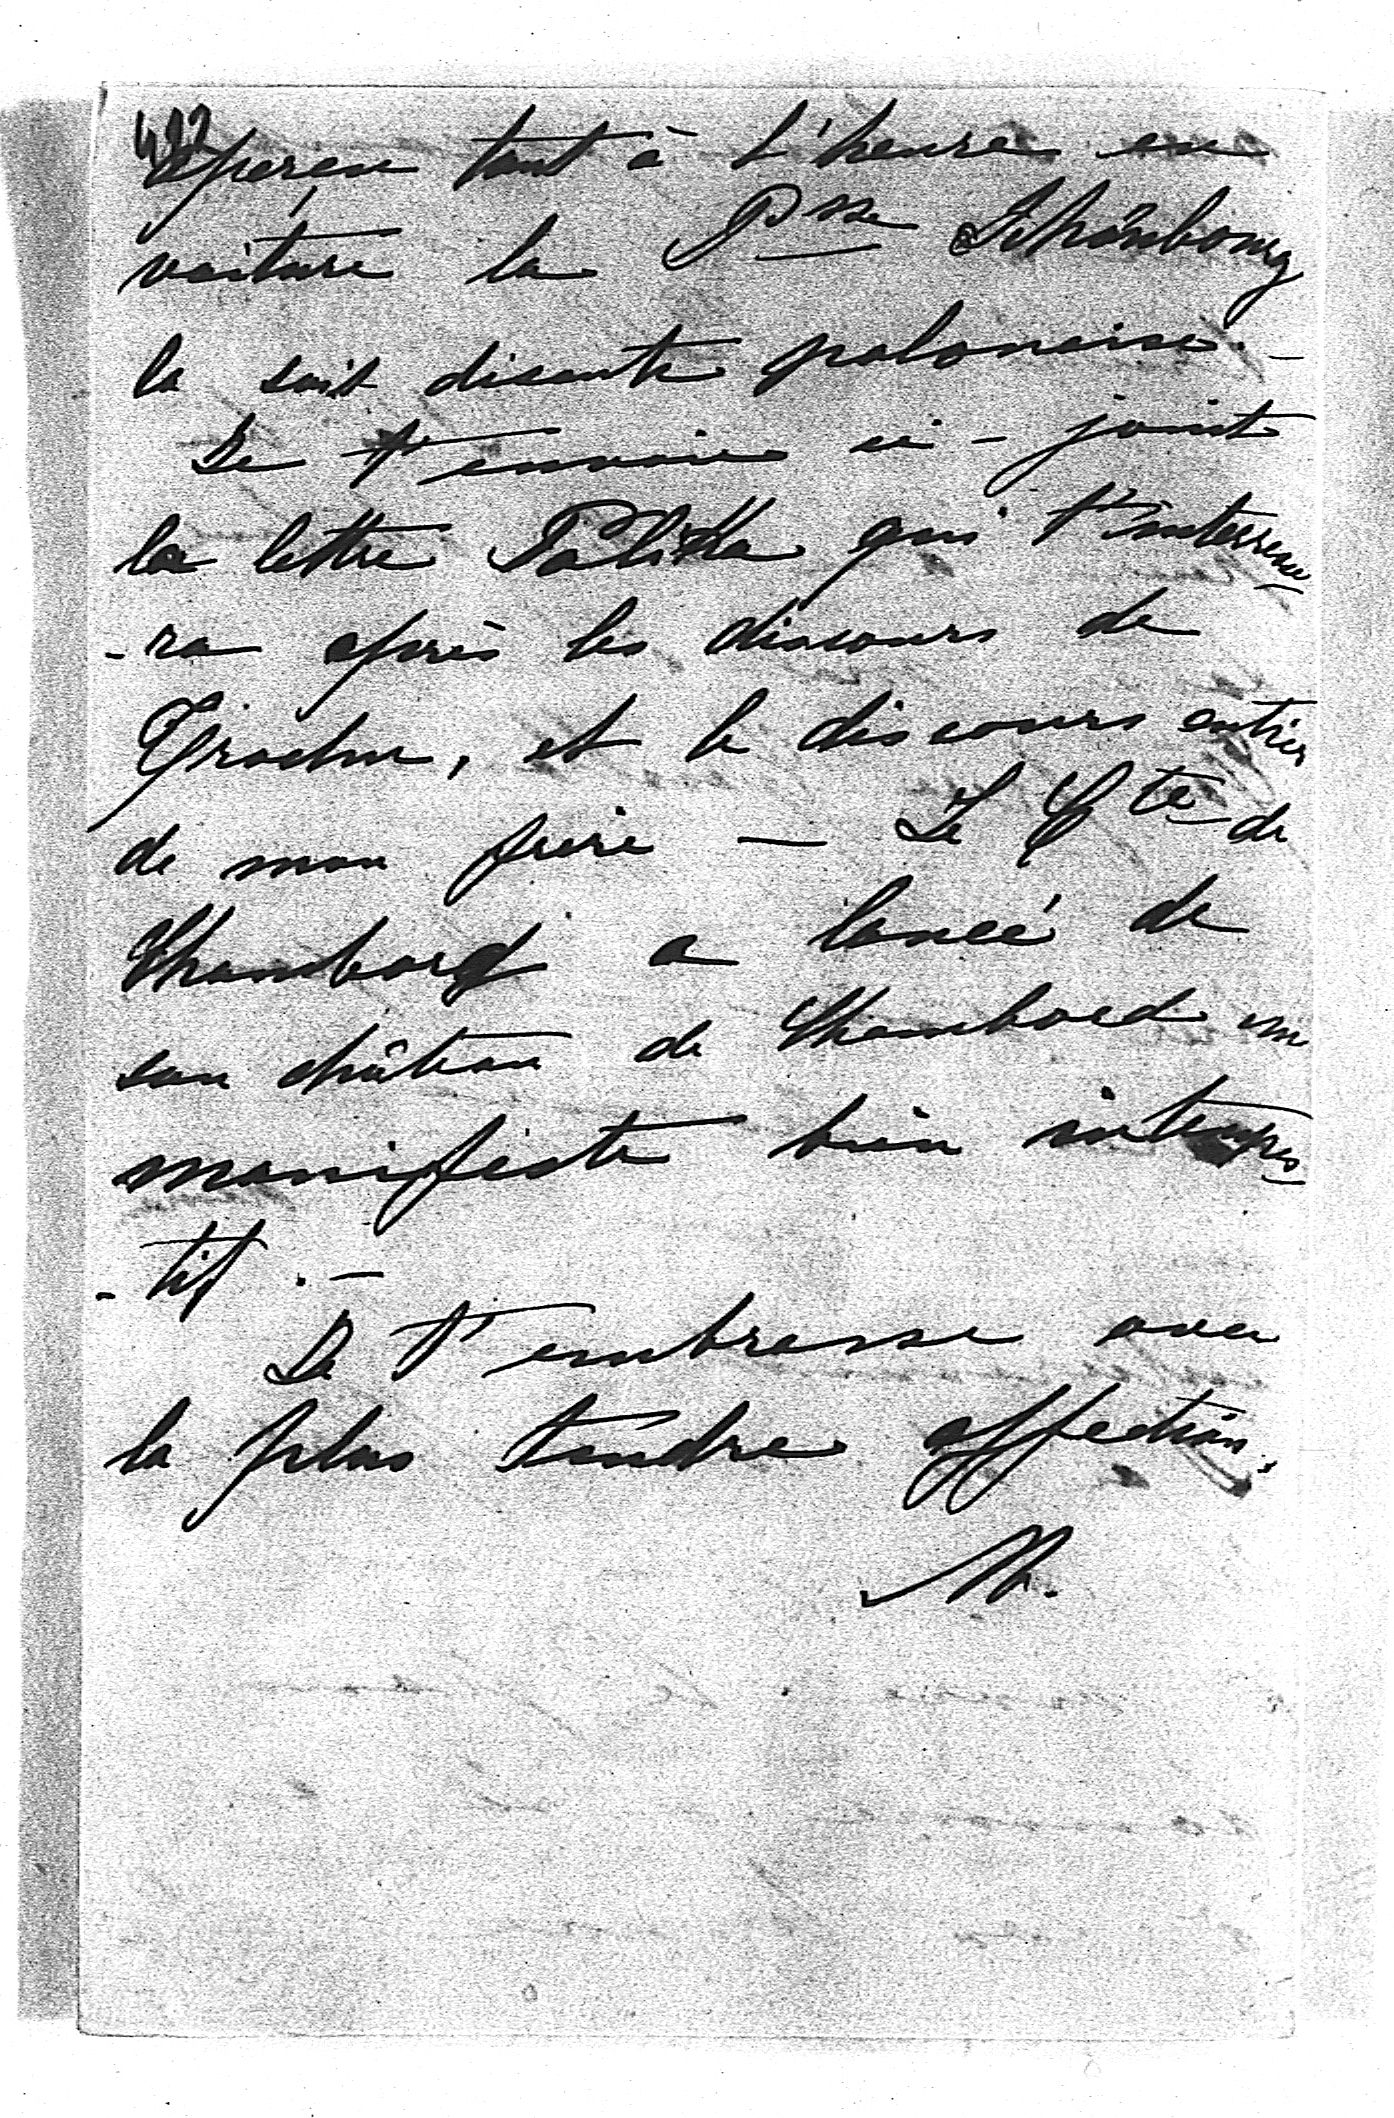 aperçu tout à l'heure en
voiture la Psse Schönbourg
la soit disante polonaise. -
Je t'envoie ci-joint
la lettre Palikao qui t'interresse
-ra après les discours de
Trochu, et le discours entier
de mon frère — Le Cte de
Chambord a lancé de
son château de Chambord un
manifeste bien intempes
-tif. —
Je t'embrasse avec
la plus tendre affection.
M.